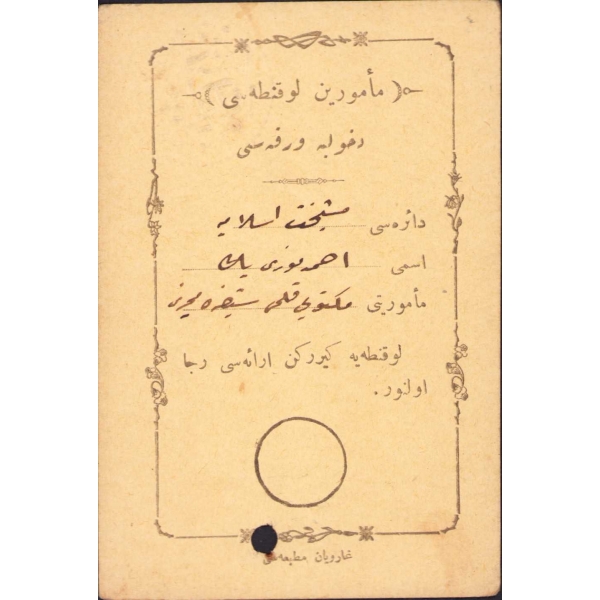 ﴿ مأمورین لوقنطه‌سی ﴾
دخولیه ورقه‌سی
دائره‌سی مشیخت اسلامیه
اسمی احمد نوری بك
مأموریتی مكتوبی قلمی
لوقنطه‌یه كیرركن ارائه‌سی رجا
اولنور.
غارویان مطبعه‌سی